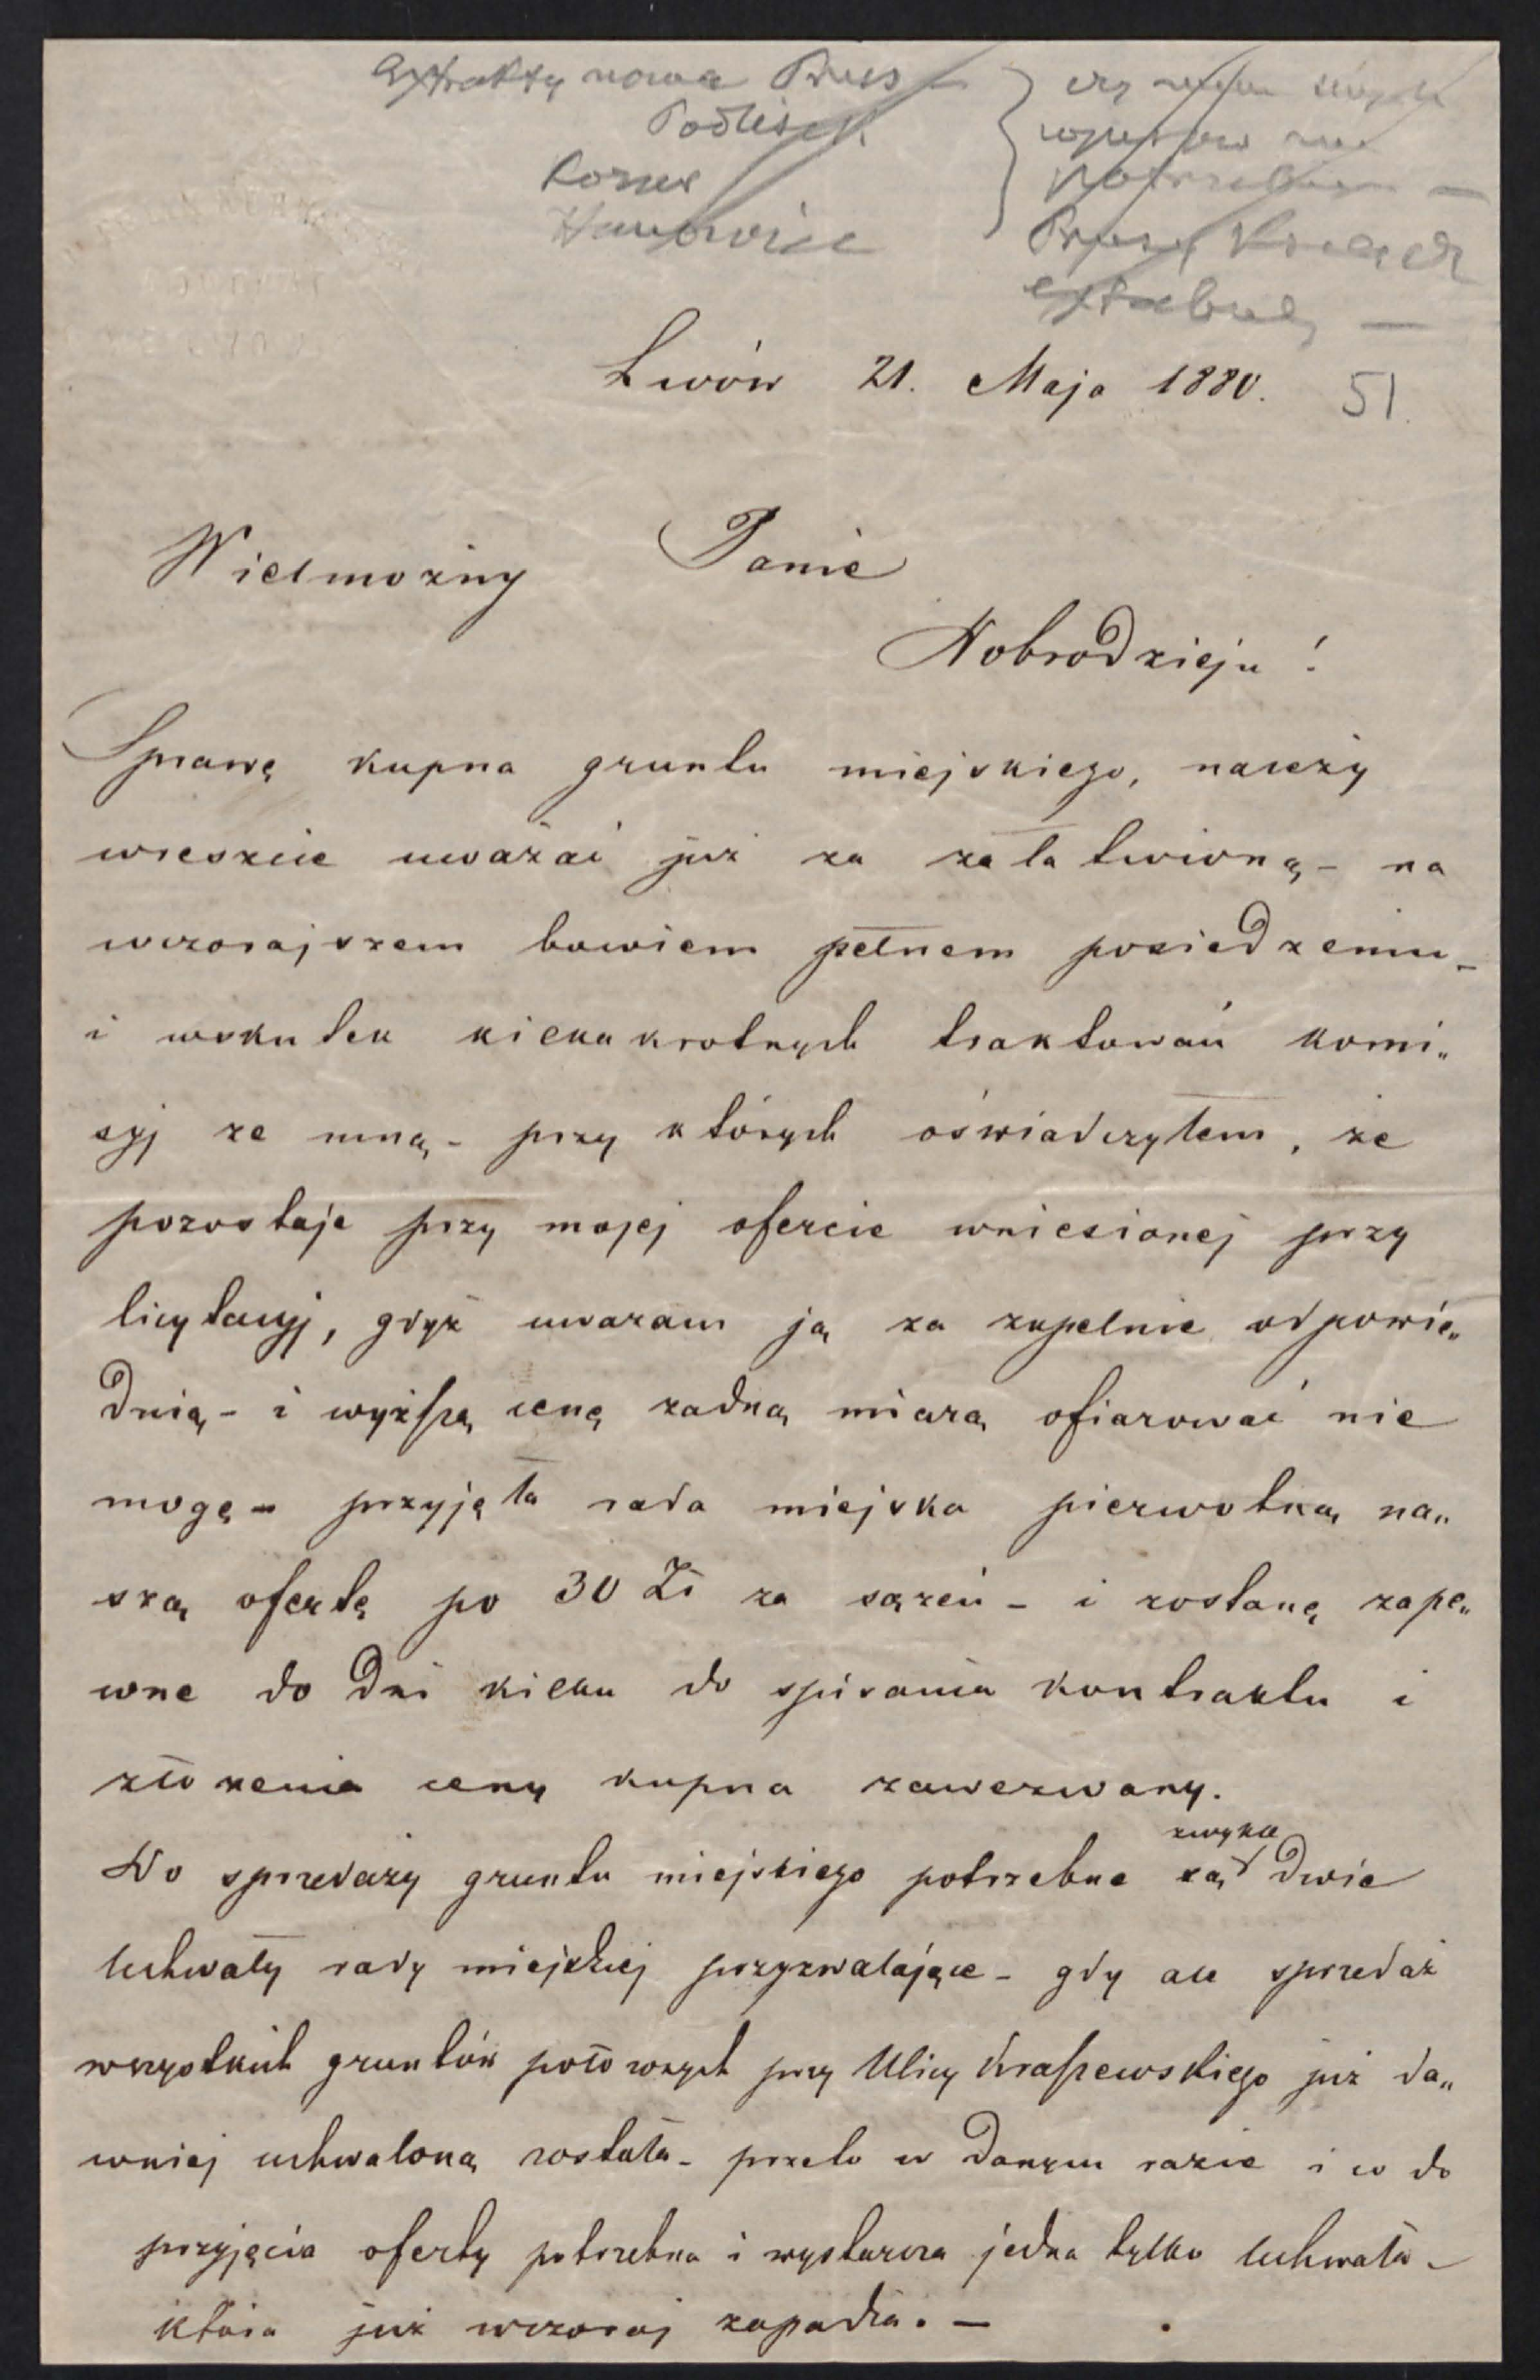 Extrakty nowa Prus —
Podlisek
Korsow
czy
potrzebuje —
Prusy
extabul, —
Lwów 21. Maja 1880. 51.
Wielmożny Panie
Dobrodzieju !
Sprawę kupna gruntu miejskiego, należy
wreszcie uważać już za załatwioną – na
wczorajszem bowiem pełnem posiedzeniu –
i wskutek kilkakrotnych traktowań komi„
syj ze mną – przy których oświadczyłem, że
pozostaje przy mojej ofercie wniesionej przy
licytacyj, gdyż uważam ją za zupełnie odpowie„
dnią – i wyższą cenę żadną miarą ofiarować nie
mogę – przyjęła rada miejska pierwotną na„
szą ofertę po 30 Zł za sążeń – i zostanę zape„
wne do dni kilku do spisania kontraktu i
złożenia ceny kupna zawezwany.
Do sprzedaży gruntu miejskiego potrzebne są zwykle dwie
uchwały rady miejskiej przyzwalające – gdy ale sprzedaż
wszystkich gruntów położonych przy Ulicy Kraszewskiego już da„
wniej uchwaloną została – przeto w danym razie i co do
przyjęcia oferty potrzebna i wystarcza jedna tylko uchwała –
która już wczoraj zapadła. —